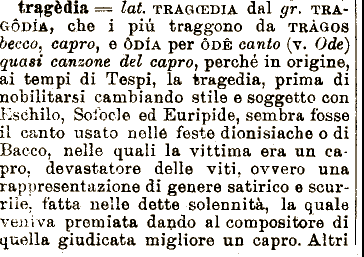 tragèdia = lat. TRAGŒDIA dal gr. TRA-
GÔDÍA, che i più traggono da TRÀGOS
becco, capro, e ÔDÍA per ÔDÊ canto (v. Ode)
quasi canzone del capro, perché in origine,
ai tempi di Tespi, la tragedia, prima di
nobilitarsi cambiando stile e soggetto con
Eschilo, Sofocle ed Euripide, sembra fosse
il canto usato nelle feste dionisiache o di
Bacco, nelle quali la vittima era un ca-
pro, devastatore delle viti, ovvero una
rappresentazione di genere satirico e scur-
rile, fatta nelle dette solennità, la quale
veniva premiata dando al compositore di
quella giudicata migliore un capro. Altri